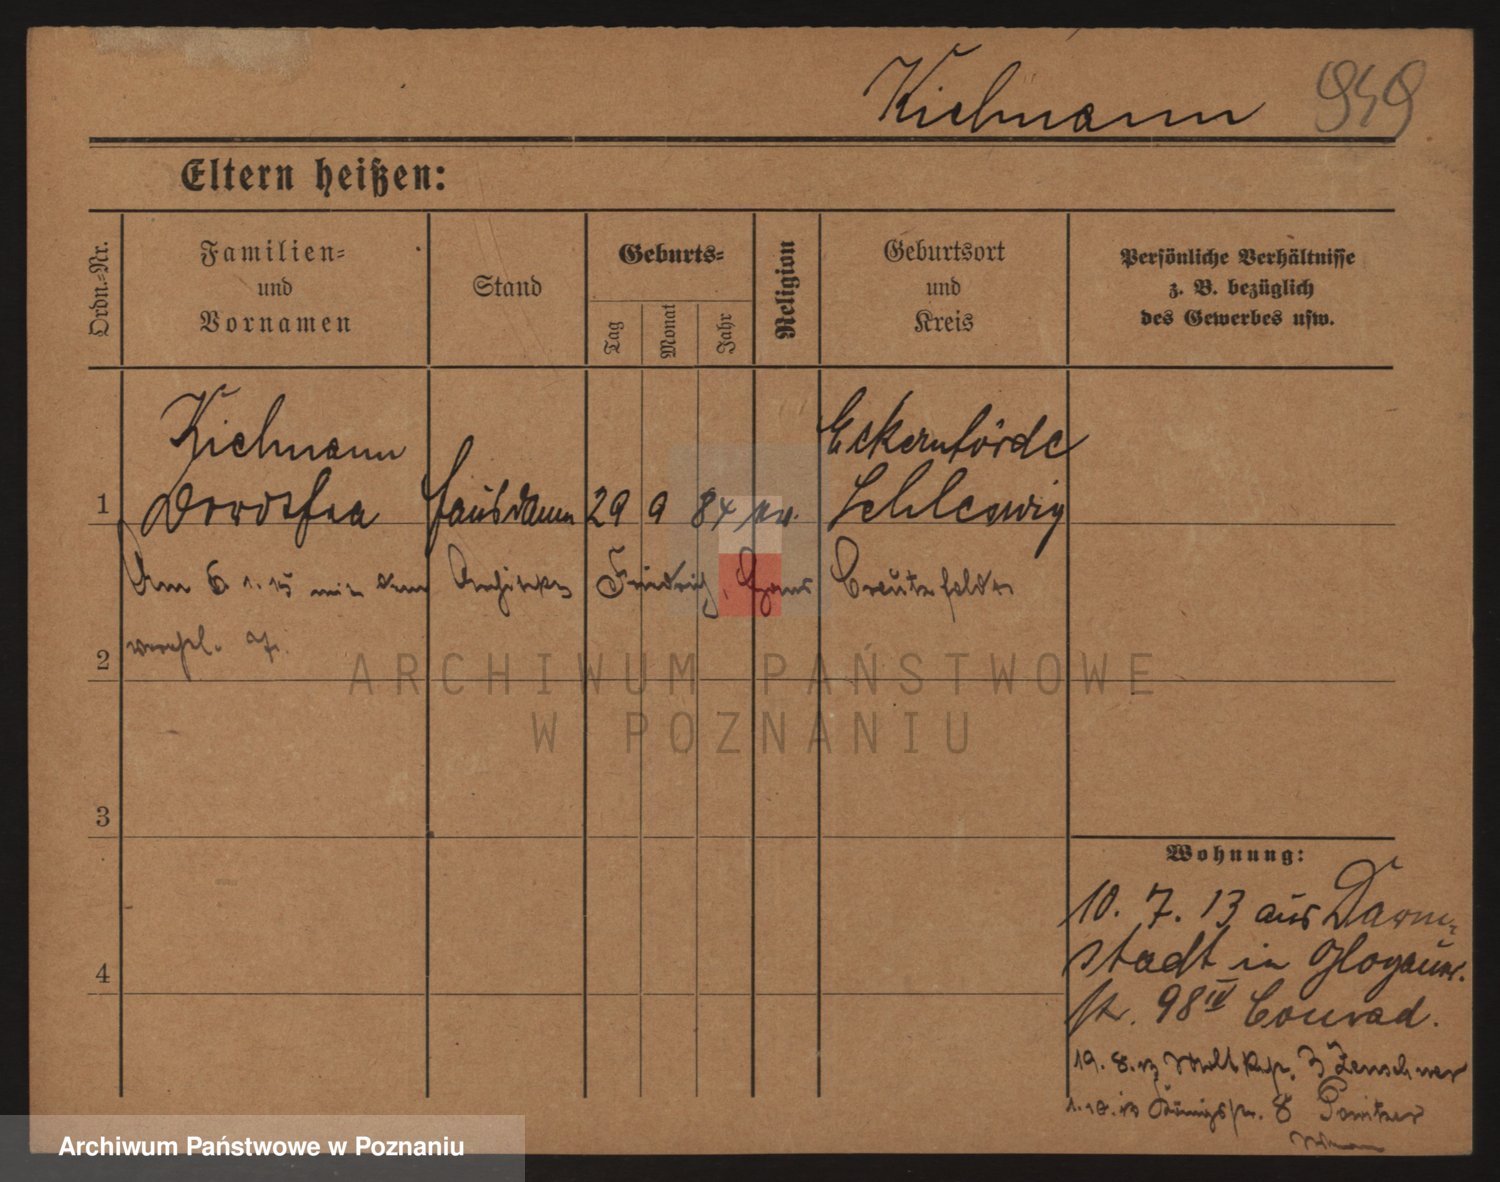 Kielmann 949
Eltern heißen:
Ordn.-Nr.
Familien-
und
Vornamen
Stand
Geburts-
Tag
Monat
Jahr
Religion
Geburtsort
und
Kreis
Persönliche Verhältnisse
z. B. bezüglich
des Gewerbes usw.
Kielmann Eckernförde
1 Dorothea Hausdame 29 9 84 ev. Schleswig
Am 6. 1. 15 mit dem Architekten Friedrich, Hans Creutzfeldt
verehel.
2
ARCHIWUM PAŃSTWOWE
W POZNANIU
3
Wohnung:
10. 7. 13 aus Darm-
stadt in Glogauer-
4
str. 98 IV Conrad.
19. 8. 13 Moltkestr. 3 Zenschner
1. 10. 13 Königstr. 8
Archiwum Państwowe w Poznaniu